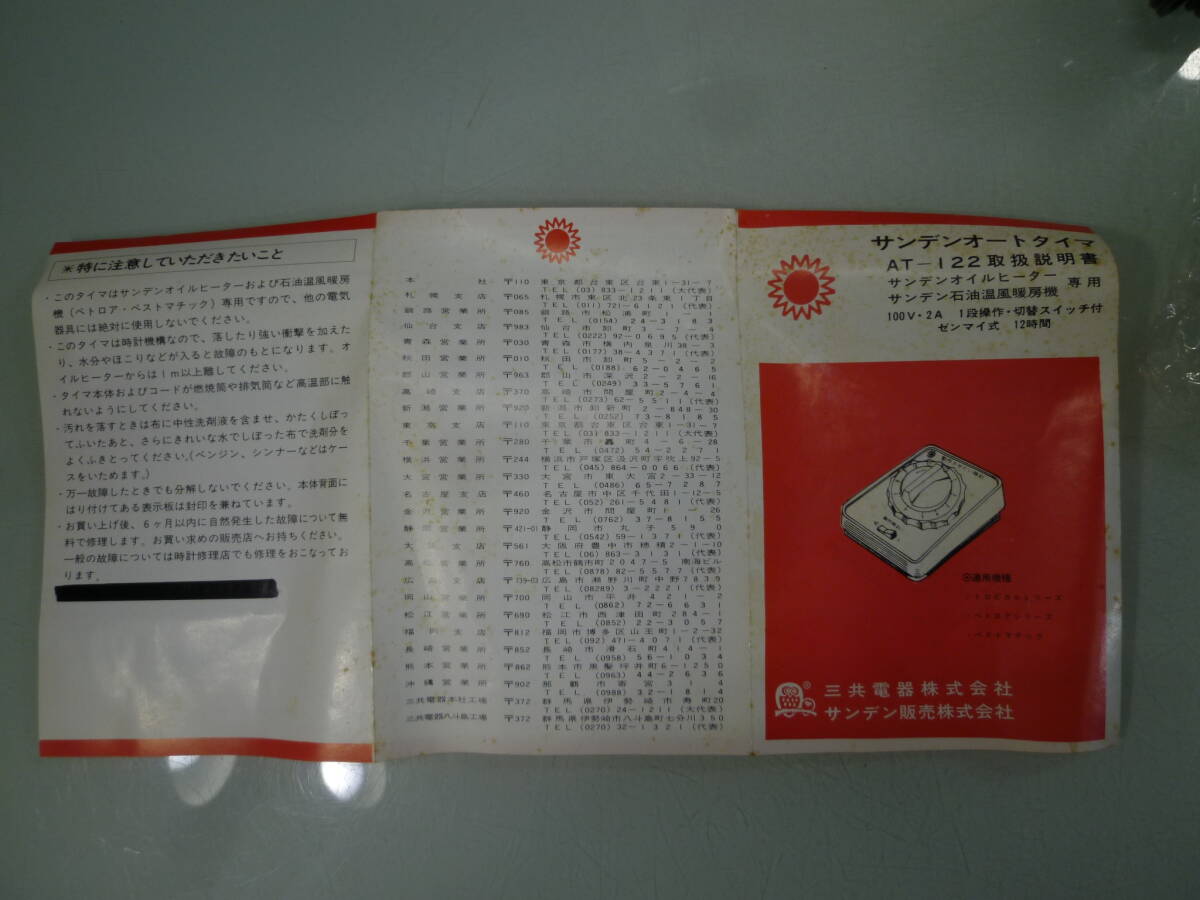 ※特に注意していただきたいこと
・このタイマはサンデンオイルヒーターおよび石油温風暖房
機(ペトロア・ベストマチック)専用ですので、他の電気
器具には絶対に使用しないでください。
・このタイマは時計機構なので、落したり強い衝撃を加えた
り、水分やほこりなどが入ると故障のもとになります。オ
イルヒーターからは1m以上離してください。
・タイマ本体およびコードが燃焼筒や排気筒など高温部に触
れないようにしてください。
・汚れを落すときは布に中性洗剤液を含ませ、かたくしぼっ
てふいたあと、さらにきれいな水でしぼった布で洗剤分を
よくふきとってください。(ベンジン、シンナーなどはケー
スをいためます。)
・万一故障したときでも分解しないでください。本体背面に
はり付けてある表示板は封印を兼ねています。
・お買い上げ後、6ヶ月以内に自然発生した故障について無
料で修理します。お買い求めの販売店へお持ちください。
一般の故障については時計修理店でも修理をおこなってお
ります。
本社 〒110 東京都台東区台東1-31-7
TEL (03) 833-1211(大代表)
札幌支店 〒065 札幌市東区北23条東1丁目
TEL (011) 721-6121(代表)
釧路営業所 〒085 釧路市松浦町1-1
TEL (0154) 24-3183
仙台支店 〒983 仙台市卸町3-7-4
TEL (0222) 92-0695(代表)
青森営業所 〒030 青森市横内泉川38-3
TEL (0177) 38-4371(代表)
秋田営業所 〒010 秋田市卸町5-2-2
TEL (0188) 62-0465
郡山営業所 〒963 郡山市深沢2-2-16
TEL (0249) 33-5761
高崎支店 〒370 高崎市問屋町2-4-4
TEL (0273) 62-5511(代表)
新潟営業所 〒920 新潟市卸新町2-848-30
TEL (0252) 73-8185
東京支店 〒110 東京都台東区台東1-31-7
TEL (03) 833-1211(大代表)
千葉営業所 〒280 千葉市轟町4-6-28
TEL (0472) 54-2271
横浜営業所 〒244 横浜市戸塚区汲沢町字吹上92-5
TEL (045) 864-0066(代表)
大宮営業所 〒330 大宮市東大宮2-33-12
TEL (0486) 65-7287
名古屋支店 〒460 名古屋市中区千代田1-12-5
TEL (052) 261-5481(代表)
金沢営業所 〒920 金沢市問屋町1-26
TEL (0762) 37-8155
静岡営業所 〒421-01 静岡市丸子590
TEL (0542) 59-1371(代表)
大阪支店 〒561 大阪府豊中市穂積2-1-10
TEL (06) 863-3131(代表)
高松営業所 〒760 高松市鶴市町2047-5 南海ビル
TEL (0878) 82-5577(代表)
広島支店 〒739-03 広島市瀬野川町中野7839
TEL (08289) 3-2221(代表)
岡山営業所 〒700 岡山市平井421-2
TEL (0862) 72-6631
松江営業所 〒690 松江市西津田町284-1
TEL (0852) 22-3057
福岡支店 〒812 福岡市博多区山王町1-2-32
TEL (092) 471-4071(代表)
長崎営業所 〒852 長崎市滑石町414-1
TEL (0958) 56-1034
熊本営業所 〒862 熊本市黒髪坪井町6-1250
TEL (0963) 44-2636
沖縄営業所 〒902 那覇市寄宮314
TEL (0988) 32-1814
三共電器本社工場 〒372 群馬県伊勢崎市寿町20
TEL (0270) 24-1211(大代表)
三共電器八斗島工場 〒372 群馬県伊勢崎市八斗島町七分川350
TEL (0270) 32-1321(代表)
サンデンオートタイマ
AT-122取扱説明書
サンデンオイルヒーター
サンデン石油温風暖房機 専用
100V・2A 1段操作・切替スイッチ付
ゼンマイ式 12時間
◎適用機種
・トロピカルシリーズ
・ペトロアシリーズ
・ベストマチック
三共電器株式会社
サンデン販売株式会社